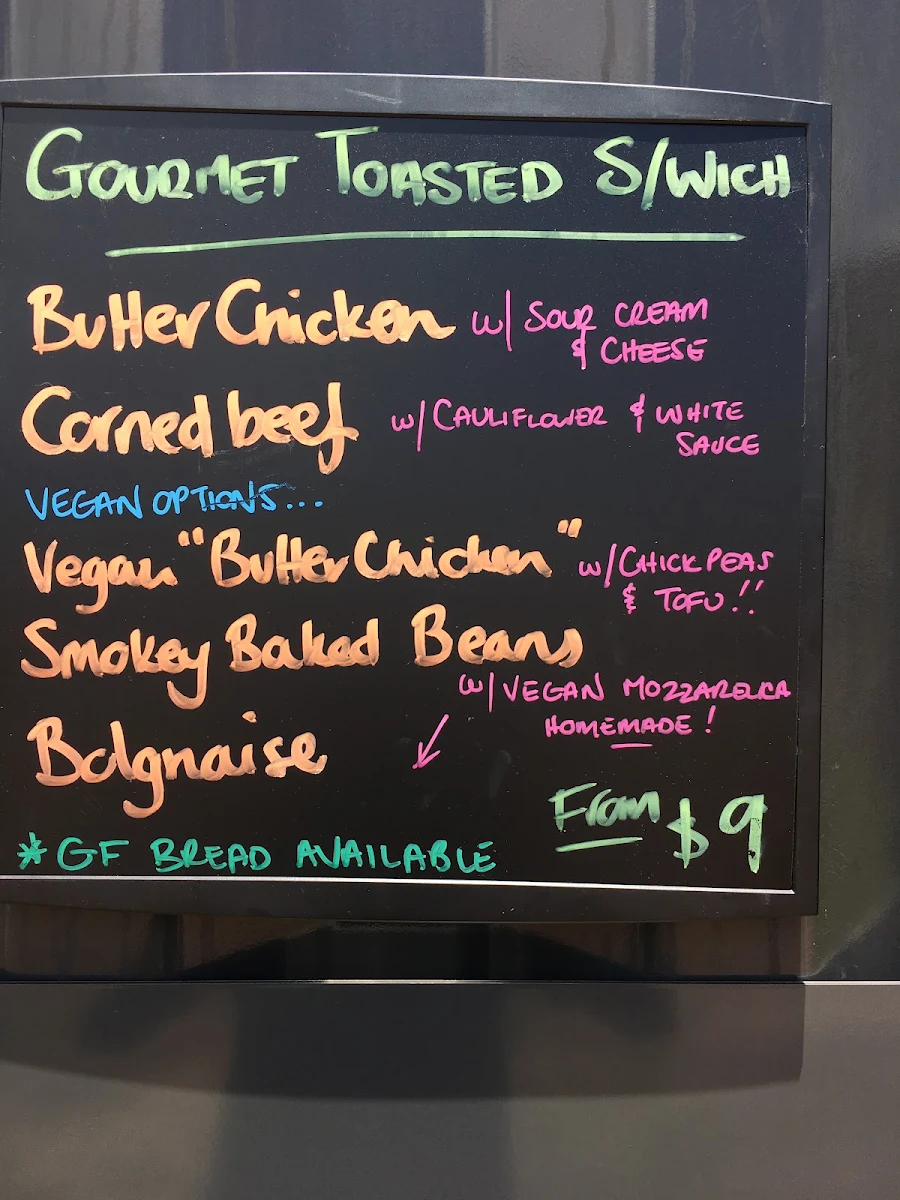 GOURMET TOASTED S/WICH
Butter Chicken w/ SOUR CREAM
& CHEESE
Corned beef w/ CAULIFLOWER & WHITE
SAUCE
VEGAN OPTIONS...
Vegan "Butter Chicken" w/ CHICKPEAS
& TOFU!!
Smokey Baked Beans
w/ VEGAN MOZZARELLA
HOMEMADE!
Bolgnaise
From $9
* GF BREAD AVAILABLE